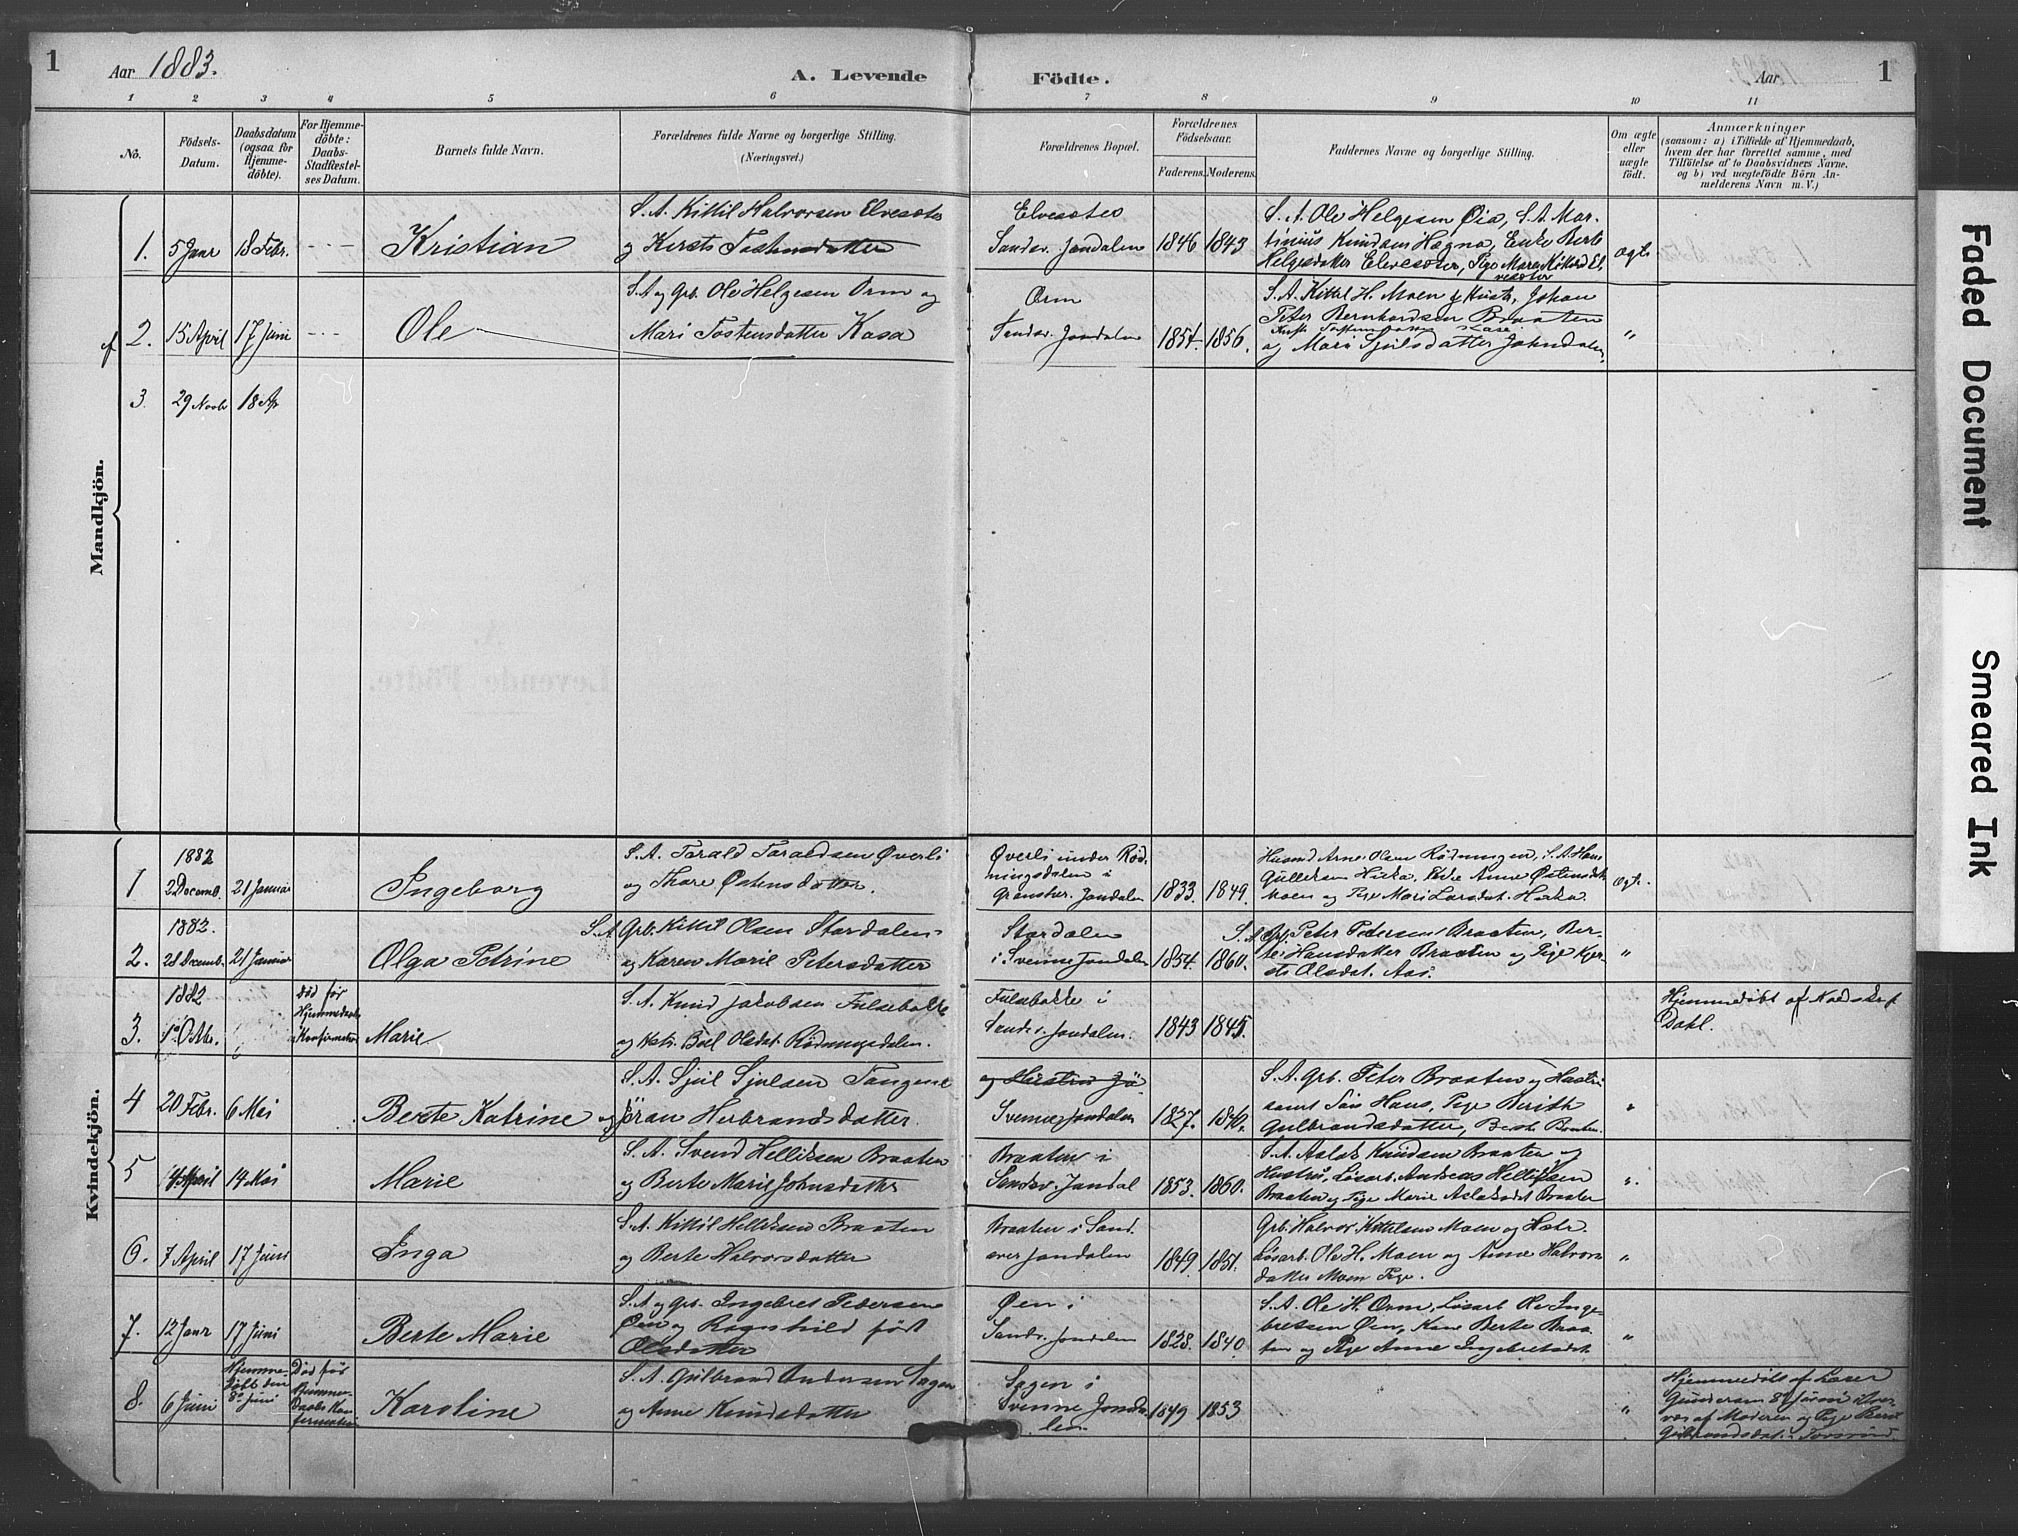 1
Aar 1883.
A. Levende Födte.
Aar
1
1 2 3 4 5 6 7 8 9 10 11
No.
Födsels-
Datum.
Daabsdatum
(ogsaa for
Hjemme-
döbte).
For Hjemme-
döbte:
Daabs-
Stadfæstel-
ses Datum.
Barnets fulde Navn.
Forældrenes fulde Navne og borgerlige Stilling.
(Næringsvei.)
Forældrenes Bopæl.
Forældrenes
Födselsaar.
Faderens. Moderens.
Faddernes Navne og borgerlige Stilling.
Om ægte
eller
uægte
födt.
Anmærkninger
(saasom: a) i Tilfælde af Hjemmedaab,
hvem der har forrettet samme, med
Tilföielse af to Daabsvidners Navne,
og b) ved uægtefödte Börn An-
melderens Navn m. V.)
Mandkjön.
1. 5 Janr 18 Febr. Kristian
S. A. Kittil Halvorsen Elvesæter
og Kersts Tostensdatter
Elvesæter
Sandsv. Jondalen 1846 1843
S. A. Ole Helgesen Øia, S. A. Mar-
tinius Knudsen Hægna, Enke Berte
Helgesdatter Elvesæter, Pige Maren
Ægte
2. 15 April 17 Juni Ole
S. A. og Grb. Ole Helgesen Orm og
Mari Tostensdatter Kasa
Orm
Sandsv. Jondalen 1854. 1856.
S. A. Kittil H. Moen & Hustr, Johan
Peter Bernhardsen Braaten
og Mari Sjulsdatter Johndalen
"
3. 29 Novbr 18 Ap
Kvindekjön.
1 1882
2 Decemb. 21 Januar Ingeborg
S. A. Tarald Taraldsen Øverli
og Thore Østensdatter.
Øverli under Rød-
ningsdalen i
Gransher. Jondalen 1833. 1849.
Husmd Arne Olsen Rødningen, S. A. Hans
Gulliksen Hirka, Anne Østensdt
moen og Pige Mari Larsdat. Hirka.
Ægte.
2. 1882.
28 Decemb. 21 Januar Olga Petrine
S. A. Grb. Kittil Olsen Stordalen
og Karen Marie Petersdatter
Stordalen
i Svenne Jondalen 1854. 1860.
S. A. Grb. Peter Petersen Braaten, Ber-
te Hansdatter Braaten og Pige Kjer-
sts Olsdat. Aas.
"
3. 1882
1ᵉ Octbr. Død før
Hjemmedaabs
Konfirmation Marie
S. A. Knud Jakobsen Fulsebakke
og Hstr. Boel Olsdat. Rødningsdalen.
Fulsebakke i
Sandsv. Jondalen. 1843 1845.
Hjemmedøbt af
Dahl.
4 20 Febr. 6 Mai Berte Katrine
S. A. Sjul Sjulsen Tangene
og Jøran Herbrandsdatter.
og Kirstin Jø
Svenne Jondalen 1827. 1840.
S. A. Grb. Peter Braaten og Hustr.
samt Søn Hans, Pige Berith
Gulbrandsdatter,
"
5 April 14 Mai Marie
S. A. Svend Helliksen Braaten
og Berte Marie Johnsdatter
Braaten i
Sandsv. Jondal 1853. 1860.
S. A. Aslak Knudsen Braaten og
Hustru, Løsarb. Andreas Helliksen
Braaten og Pige Marie Aslaksdt Braaten
"
6. 7 April 17 Juni Inga
S. A. Kittil Helliksen Braaten
og Berte Halvorsdatter
Braaten i Sand.
sver Jondalen 1849. 1851.
Grb. Halvor Kittelsen Moen og Hstr.
Løsarb. Ole H. Moen og Anne Halvors-
datter Moen Pige.
"
7. 12 Janr 17 Juni Berte Marie
S. A. og Grb. Ingebret Pedersen
Øen og Ragnhild født
Olsdatter
Øen i
Sandsv. Jondalen 1828. 1840.
S. A. Ole H. Orm, Løsarb Ole Inge-
bretsen Øen, Kone Berte Braa-
ten og Pige Anne Ingebretsdt.
"
8. 6 Juni Hjemme-
døbt den
8ᵉ Juni Død før
Hjemme-
daabs Kon-
firmation Karoline
S. A. Gulbrand Andersen Sagen
og Anne Knudsdatter
Sagen i
Svenne Jonda-
len 1849 1853
"
Hjemmedøbt af Lærer
Gundersen 8ᵉ Juni Over-
vær af Moderen og Pige Berit
Gulbrandsdat.
Faded Document
Smeared Ink